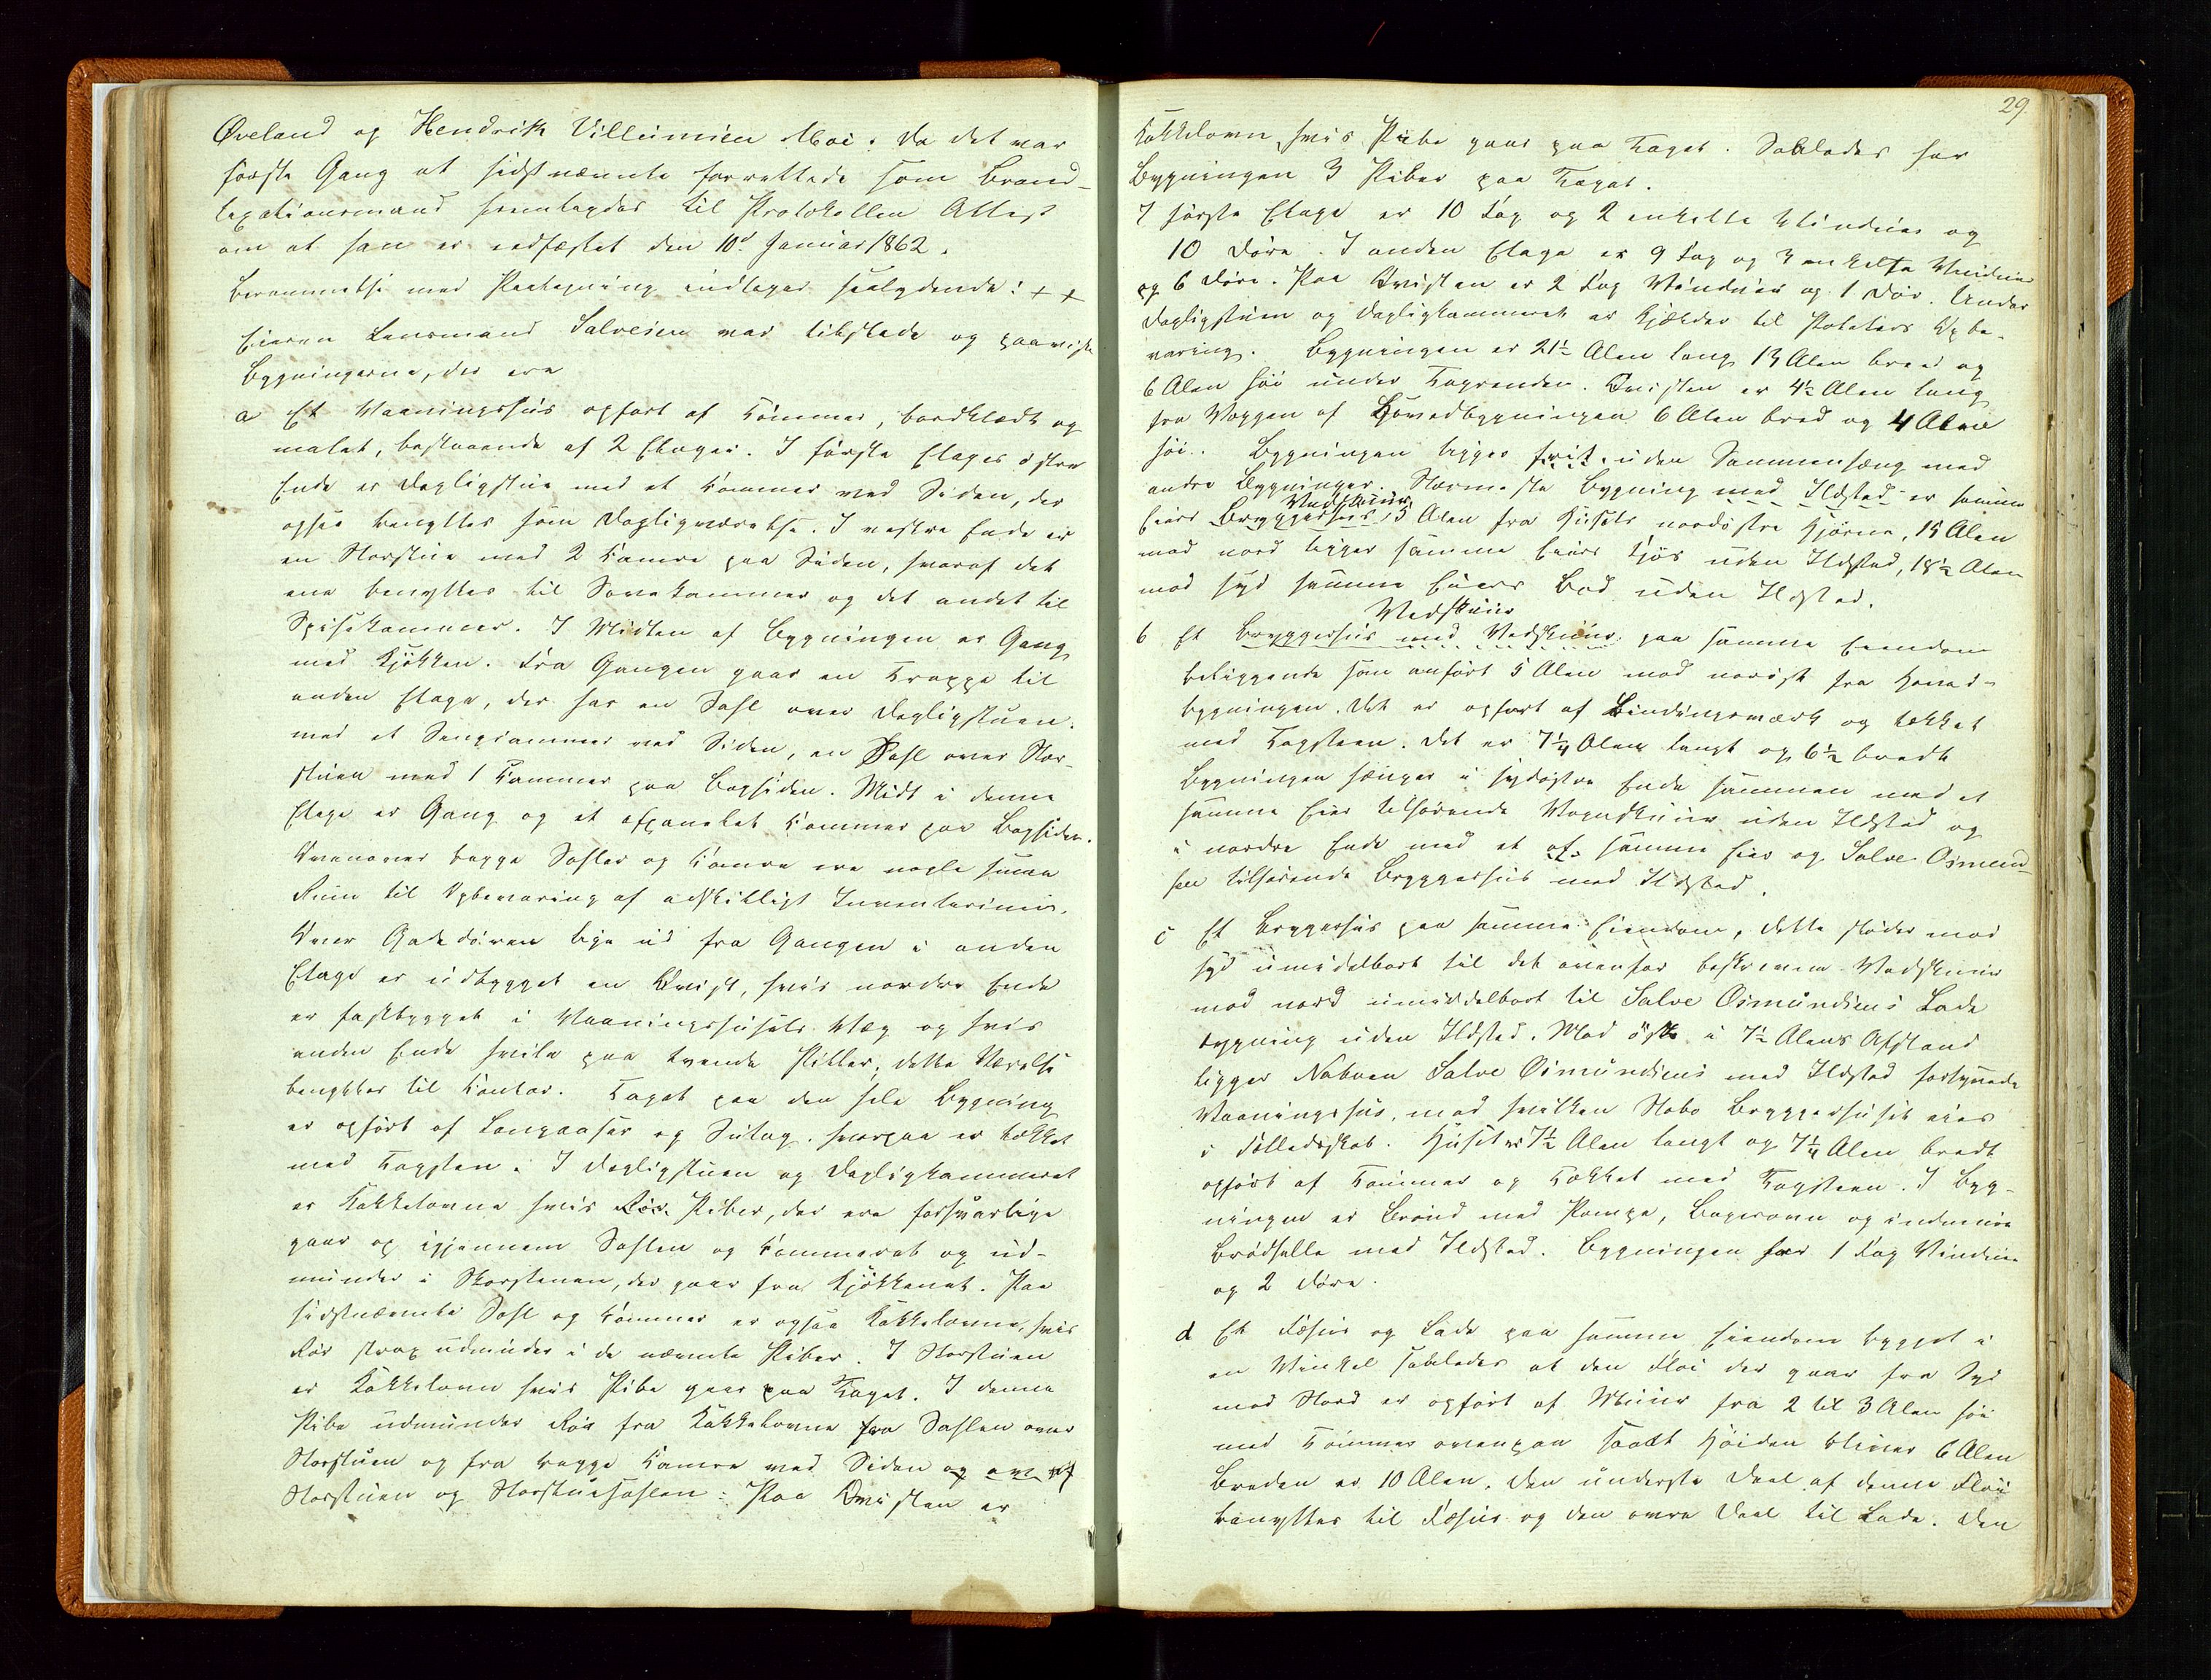 Øveland og Hendrik Villumsen Moi. Da det var
første Gang at sidstnævnte forrettede som Brand-
taxationsmand fremlagdes til Protokollen Attest
om at han er edfæstet den 10d Januar 1862.
Berammelse med Paategning indtages saalydende: ++
Eieren Lensmand Salvesen var tilstede og paaviste
Bygningerne, der ere
a Et Vaaningshus opført af Tømmer, bordklædt og
malet, bestaaende af 2 Etager. I første Etages østre
Ende er Dagligstue med et Kammer ved Siden, der
ogsaa benyttes som Dagligværelse. I vestre Ende er
en Storstue med 2 Kamre paa Siden, hvoraf det
ene benyttes til Sovekammer og det andet til
Spisekammer. I Midten af Bygningen er Gang
med Kjøkken. Fra Gangen gaar en Trappe til
anden Etage, der har en Sahl over Dagligstuen
med et Sengkammer ved Siden, en Sahl over Stor-
stuen med 1 Kammer paa Bagsiden. Midt i denne
Etage er Gang og et afpanelet Kammer paa Bagsiden.
Ovenover begge Sahler og Kamre ere nogle smaa
Rum til Opbevaring af adskilligt Inventarium.
Over Gadedøren lige ud fra Gangen i anden
Etage er udbygget en Qvist, hvis nordre Ende
er fastbygget i Vaaningshusets Væg og hvis
anden Ende hvile paa tvende Piller; dette Værelse
benyttes til Kontor. Taget paa den hele Bygning
er opført af Langaaser og Sutag, hvorpaa er tækket
med Tagsten. I Dagligstuen og Dagligkammeret
er Kakkelovne hvis Rør Piber, der ere forsvarlige
gaar op igjennem Sahlen og Kammeret og ud-
munder i Skorstenen, der gaar fra Kjøkkenet. Paa
sidstnævnte Sahl og Kammer er ogsaa Kakkelovne, hvis
Rør strax udmunder i de nævnte Piber. I Storstuen
er Kakkelovn hvis Pibe gaar paa Taget. I denne
Pibe udmunder Rør fra Kakkelovne fra Sahlen over
Storstuen og fra begge Kamre ved Siden og
Storstuen og Storstuesahlen: Paa Qvisten er
29.
Kakkelovn hvis Pibe gaar paa Taget. Saaledes har
Bygningen 3 Piber paa Taget.
I første Etage er 10 Fag og 2 enkelte Vinduer og
10 Døre. I anden Etage er 9 Fag og 3 enkelte Vinduer
og 6 Døre. Paa Qvisten er 2 Fag Vinduer og 1 Dør. Under
Dagligstuen og Dagligkammeret er Kjælder til Poteters Opbe-
varing. Bygningen er 21½ Alen lang 13 Alen bred og
6 Alen høi under Tagrenden. Qvisten er 4½ Alen lang
fra Væggen af Hovedbygningen 6 Alen bred og 4 Alen
høi. Bygningen ligger frit uden Sammenhæng med
andre Bygninger. Nærmeste Bygning med Ildsted er samme
Vedskuur
Eiers Bryggerhus, 5 Alen fra Husets nordøstre Hjørne, 15 Alen
mod nord ligger samme Eiers Fjøs uden Ildsted, 18½ Alen
mod syd samme Eiers Bod uden Ildsted.
Vedskuur
b Et Bryggerhus med Vedskuur paa samme Eiendom
beliggende som anført 5 Alen mod norøst fra Hoved-
bygningen. Det er opført af Bindingsværk og tækket
med Tagsteen. Det er 7¼ Alen langt og 6½ bredt
Bygningen hænger i sydøstre Ende sammen med et
samme Eier tilhørende Vognskuur uden Ildsted og
i nordre Ende med et af samme Eier og Salve Osmund-
sen tilhørende Bryggerhus med Ildsted.
c Et Bryggerhus paa samme Eiendom, dette støder mod
syd umidelbart til det ovenfor beskrevne Vedskuur
mod nord umiddelbart til Salve Osmundsens Lade
bygning uden Ildsted. Mod øst i 7½ Alens Afstand
ligger Naboen Salve Osmundsens med Ildsted forsynede
Vaaningshus, med hvilken Nabo Bryggerhuset eies
i Fælledsskab. Huset er 7½ Alen langt og 7¼ Alen bredt
opført af Tømmer og Tækket med Tagsteen. I Byg-
ningen er Brønd med Pompe, Bagerovn og indmuret
Brødhelle med Ildsted. Bygningen har 1 Fag Vinduer
og 2 Døre.
d Et Fæhus og Lade paa samme Eiendom bygget i
en Vinkel saaledes at den Fløi der gaar fra Syd
mod Nord er opført af Muur fra 2 til 3 Alen høi
med Tømmer ovenpaa saa at Høiden bliver 6 Alen
Breden er 10 Alen. Den underste Deel af denne Fløi
benyttes til Fæhus og den øvre Deel til Lade. Den